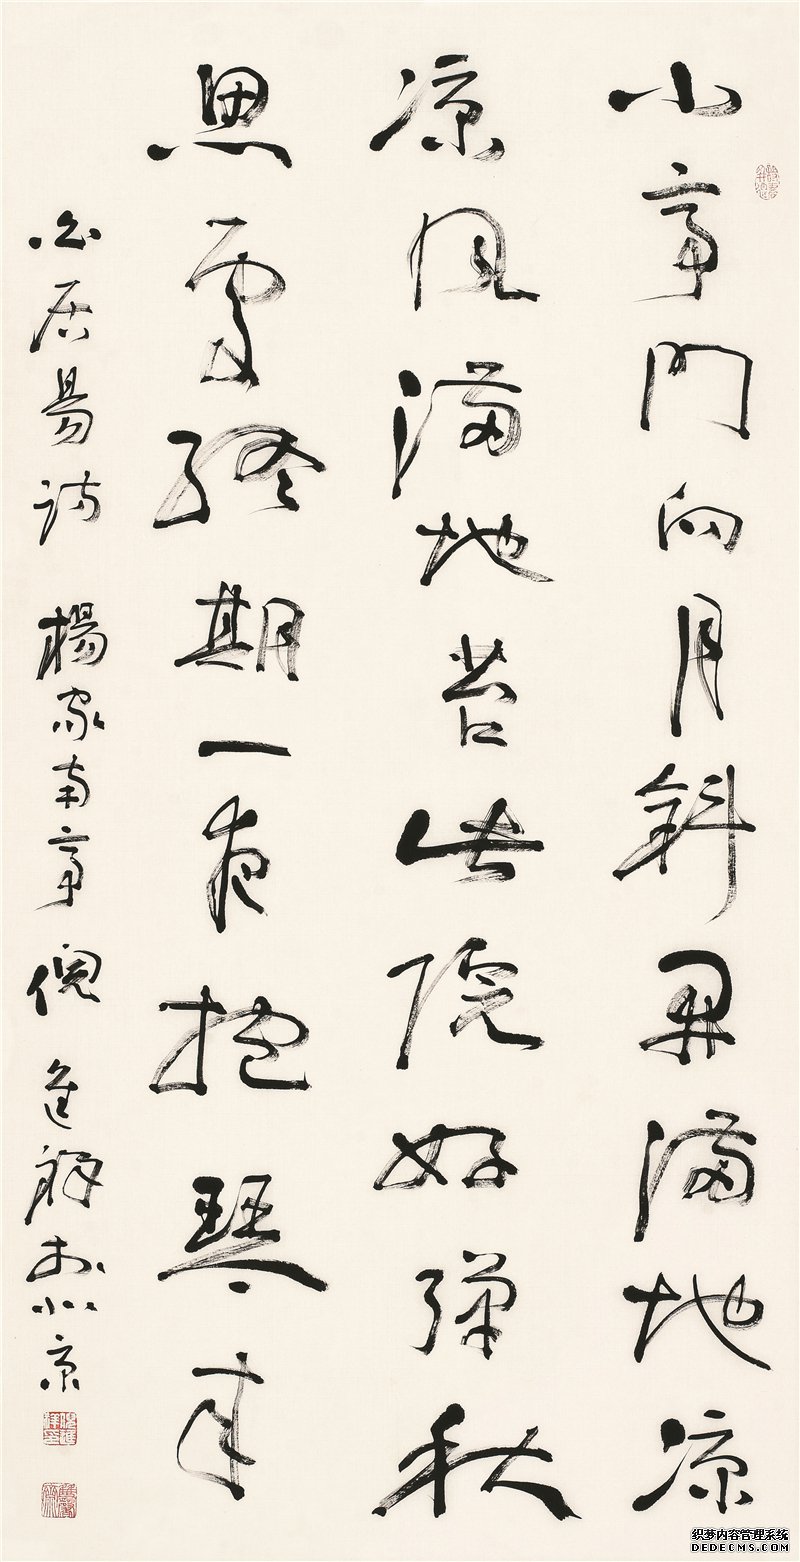 小亭門向月斜開滿地凉
凉風滿地苔此院好彈秋
思處終期一夜抱琴来
白居易詩 楊家南亭 倪進祥於北京
织梦内容管理系统
DEDECMS.COM